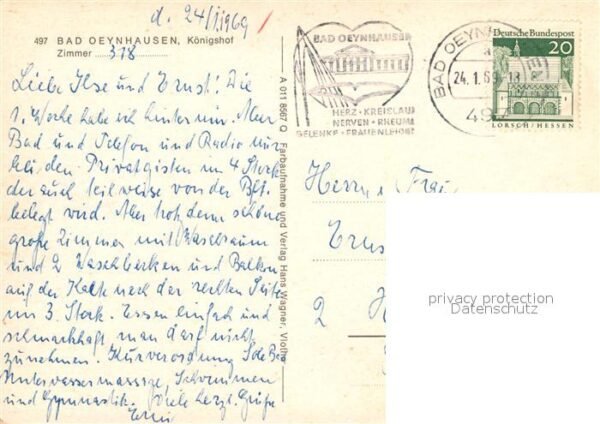 d. 24/1.1969
497 BAD OEYNHAUSEN, Königshof
Zimmer 318
Liebe Ilse und Ernst! Die
1. Woche habe ich hinter mir. Aber
Bad und Telefon und Radio nur
bei den Privatgästen im 4 Stock
der auch teilweise von der BfA
belegt wird. Aber trotzdem schöne
große Zimmer mit Waschraum
und 2 Waschbecken und Balkon
auf der Kalt nach der rechten Seite
im 3. Stock. Essen einfach und
schmackhaft, man darf nicht
zunehmen. Kurverordnung Sole Bad
Unterwassermassage, Schwimmen
und Gymnastik. Viele herzl. Grüße
A 011 8567 Q Farbaufnahme und Verlag Hans Wagner, Vlotho
BAD OEYNHAUSEN
HERZ • KREISLAUF
NERVEN • RHEUMA
GELENKE • FRAUENLEIDEN
BAD OEYNH
24.1.69-18
497
Deutsche Bundespost
20
LORSCH/HESSEN
Herrn u. Frau
Ernst
2 H
privacy protection
Datenschutz